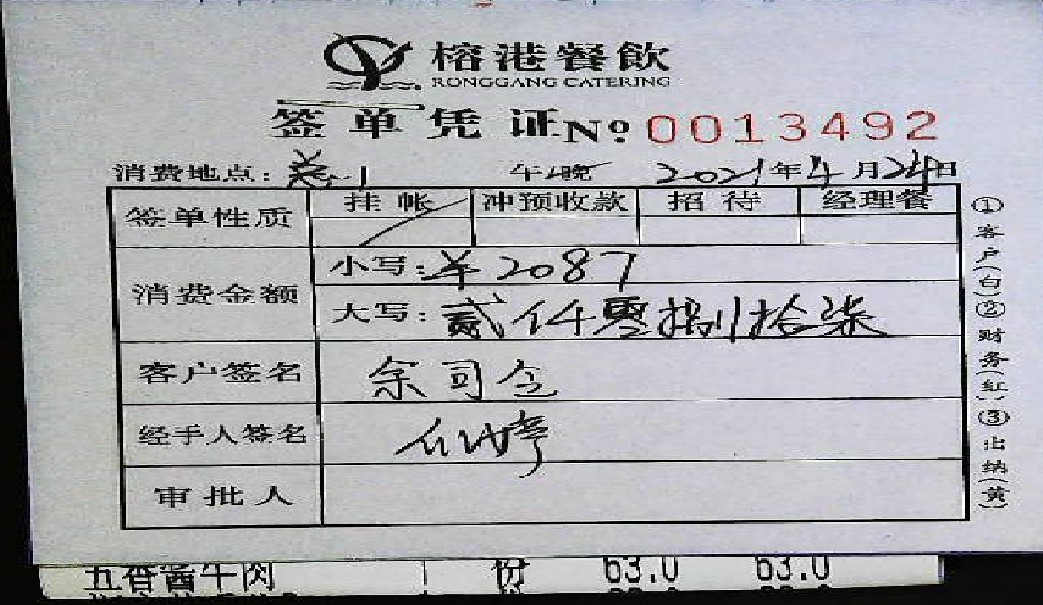 榕港餐飲
RONGGANG CATERING
签单凭证 No 0013492
消费地点： 午晚 2021年4月24日
签单性质 挂帐 冲预收款 招待 经理餐
消费金额 小写：¥2087
大写：贰仟零捌拾柒
客户签名 余司令
经手人签名
审批人
①客户(白)②财务(红)③出纳(黄)
五香酱牛肉 份 63.0 63.0